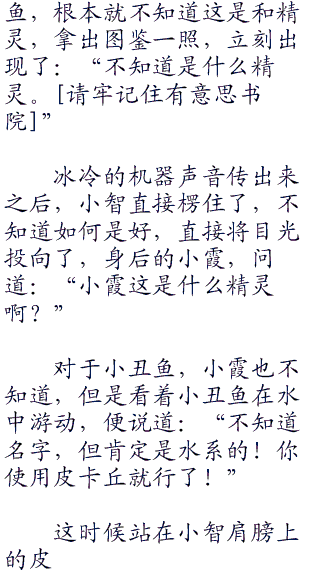 鱼，根本就不知道这是和精
灵，拿出图鉴一照，立刻出
现了：“不知道是什么精
灵。[请牢记住有意思书
院]”
冰冷的机器声音传出来
之后，小智直接楞住了，不
知道如何是好，直接将目光
投向了，身后的小霞，问
道：“小霞这是什么精灵
啊？”
对于小丑鱼，小霞也不
知道，但是看着小丑鱼在水
中游动，便说道：“不知道
名字，但肯定是水系的！你
使用皮卡丘就行了！”
这时候站在小智肩膀上
的皮